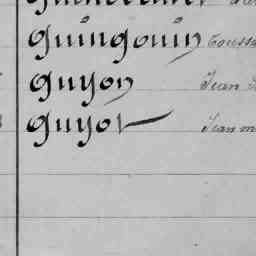 Guingouin Touss
Guyon Jean
Guyot Jean m